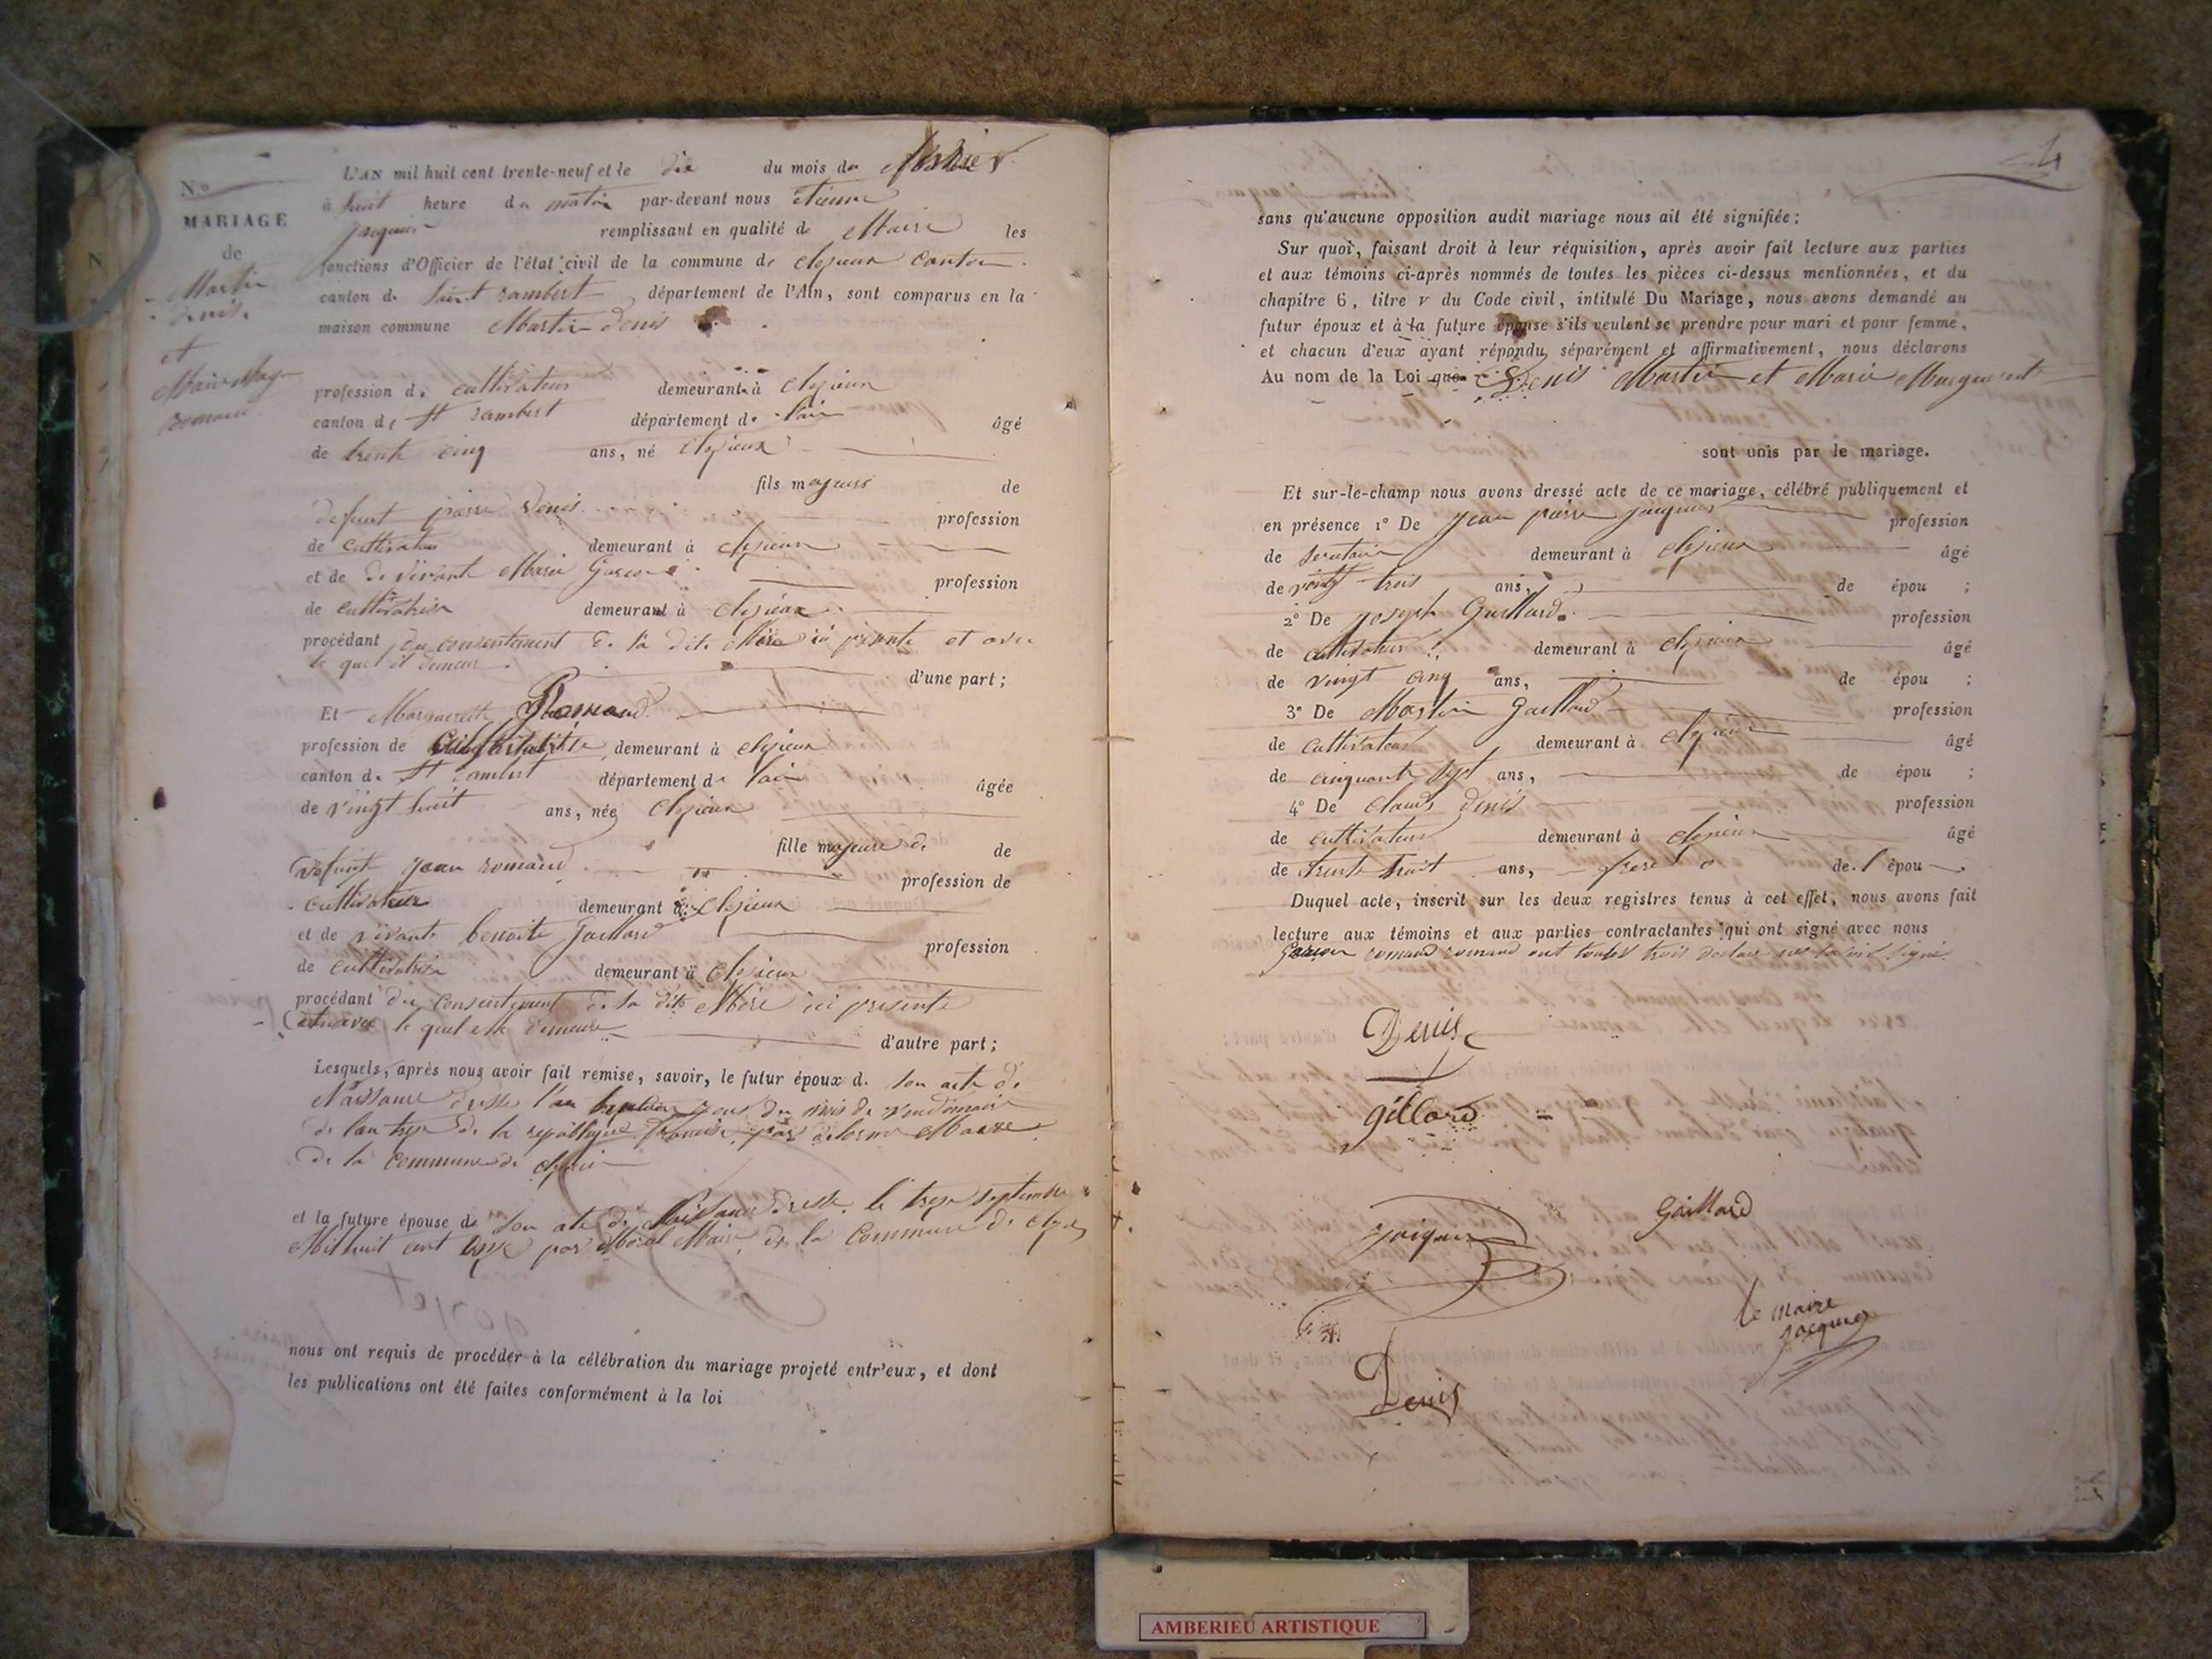 N.o
MARIAGE
de
Martin
denis.
et
Marie Mag
romand
L'AN mil huit cent trente-neuf et le dix du mois de
à huit heure du matin par-devant nous étienne
Jacquier remplissant en qualité de Maire les
fonctions d'Officier de l'état civil de la commune de clezieux canton
canton de Saint rambert département de l'Ain, sont comparus en la
maison commune Martin denis
profession de cultivateur demeurant à clezieux
canton de St rambert département de l'ain âgé
de trente cinq ans, né clezieux
fils majeur de
defunt pierre denis profession
de cultivateur demeurant à clezieux
et de de vivante Marie Garcon profession
de cultivatrice demeurant à clezieux
procédant du consentement de la dite Mère ici présente et avec
le quel il demeure d'une part;
Et Marguerite Romand
profession de cultivatrice demeurant à clezieux
canton de St rambert département de l'ain âgée
de vingt huit ans, née clezieux
fille majeure de de
defunt jean romand profession de
cultivateur demeurant à clezieux
et de vivante benoite Gaillard profession
de cultivatrice demeurant à clezieux
procédant du consentement de la dite Mère ici présente
et avec le quel elle demeure d'autre part;
Lesquels, après nous avoir fait remise, savoir, le futur époux de son acte de
Naissance dressé l'an jour du mois de vendemaire
de l'an treze de la republique par delorme Maire
de la commune de clezieu
et la future épouse de son acte de Naissance dressé le treze septembre
Mil huit cent onze par Morel Maire de la Commune de clezieu
nous ont requis de procéder à la célébration du mariage projeté entr'eux, et dont
les publications ont été faites conformément à la loi
4
sans qu'aucune opposition audit mariage nous ait été signifiée;
Sur quoi, faisant droit à leur réquisition, après avoir fait lecture aux parties
et aux témoins ci-après nommés de toutes les pièces ci-dessus mentionnées, et du
chapitre 6, titre v du Code civil, intitulé Du Mariage, nous avons demandé au
futur époux et à la future épouse s'ils veulent se prendre pour mari et pour femme,
et chacun d'eux ayant répondu séparément et affirmativement, nous déclarons
Au nom de la Loi que Denis Martin et Marie Marguerite
sont unis par le mariage.
Et sur-le-champ nous avons dressé acte de ce mariage, célébré publiquement et
en présence 1° De jean pierre jacquier profession
de secretaire demeurant à clezieux âgé
de vingt trois ans, de épou ;
2° De joseph Gaillard profession
de cultivateur demeurant à clezieux âgé
de vingt cinq ans, de épou ;
3° De Martin Gaillard profession
de cultivateur demeurant à clezieux âgé
de cinquante sept ans, de épou ;
4° De claude denis profession
de cultivateur demeurant à clezieux âgé
de trente huit ans, frere de l'épou .
Duquel acte, inscrit sur les deux registres tenus à cet effet, nous avons fait
lecture aux témoins et aux parties contractantes qui ont signé avec nous
Garcon romand romand ont toutes trois declaré ne savoir signé
Denis
gillard
Gaillard
Jaiquier
le maire
Jacquier
Denis
AMBERIEU ARTISTIQUE